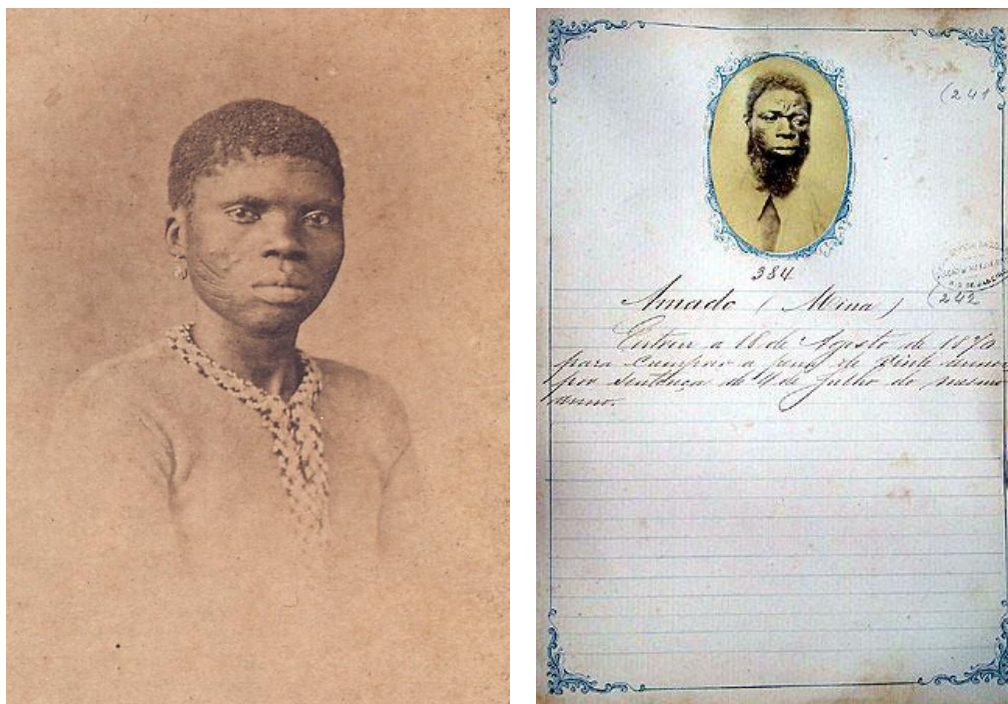 (241
384
Amado (Mina)
(242
Entrou a 18 de Agosto de 1874
para cumprir a pena de vinte annos
por sentença de 4 de Julho do mesmo
anno.